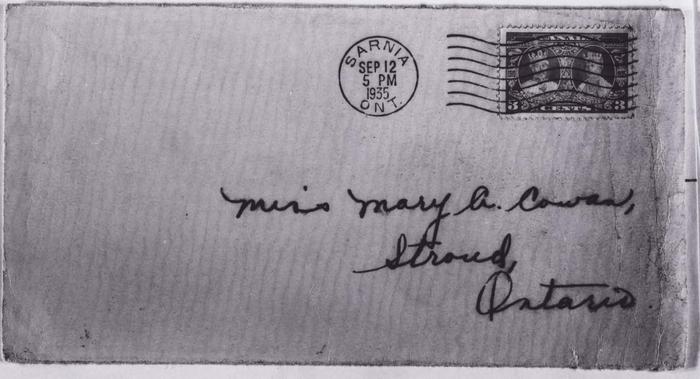 SARNIA
SEP 12
5 PM
1935
ONT.
CANADA
3 CENTS 3
Miss Mary A. Cowan,
Stroud,
Ontario.